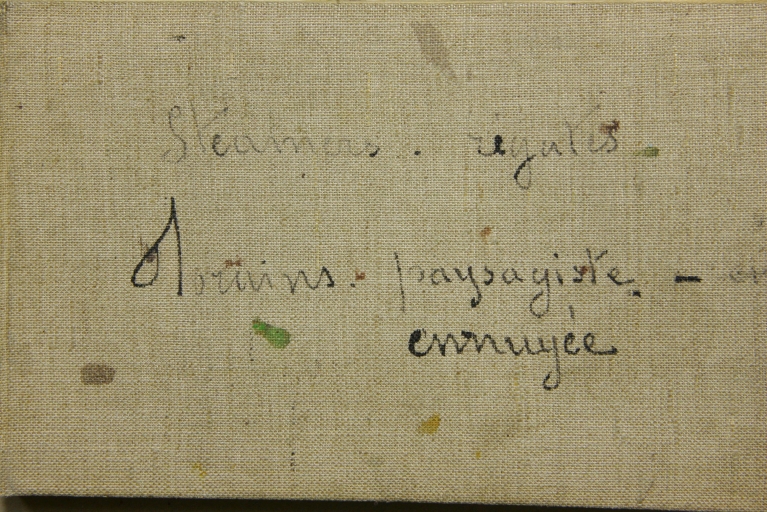 Steamers. régates
Marins. paysagiste. -
ennuyée